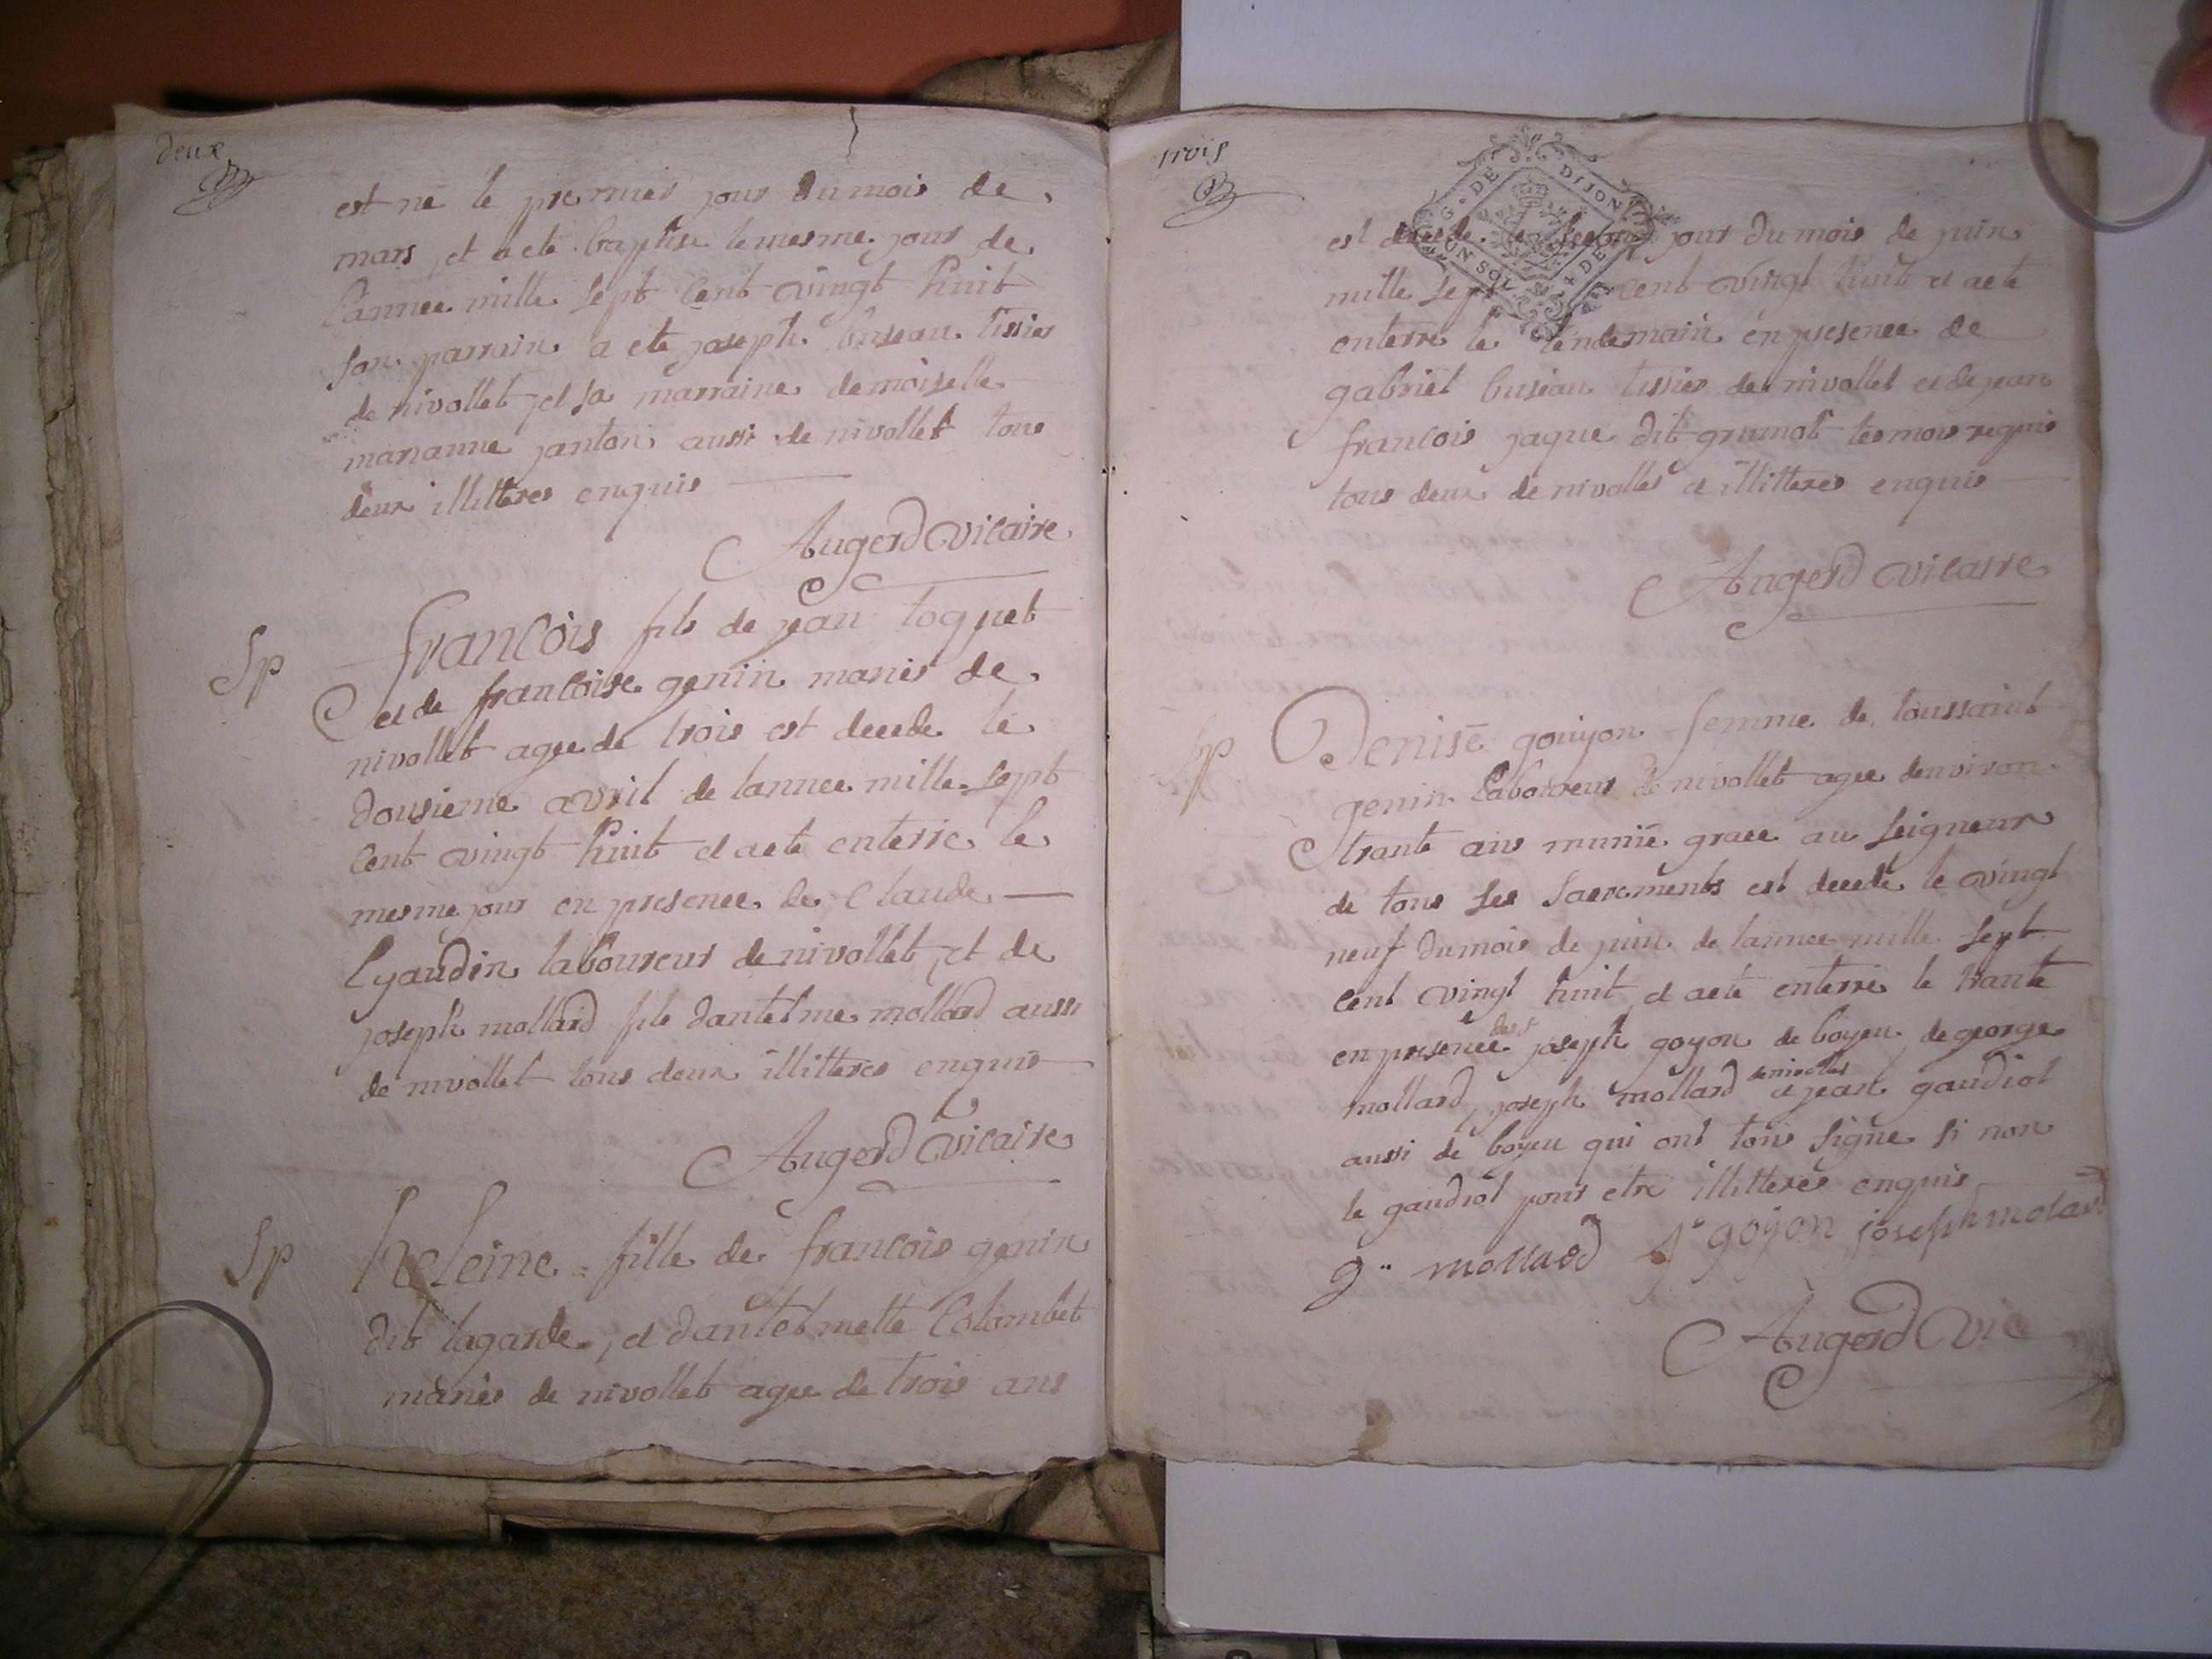 deux
est né le premier jour du mois de
mars et a ete baptise le mesme jour de
lannee mille sept cent vingt huit
son parrain a ete joseph buseau tissier
de nivollet et sa marraine demoiselle
marianne janton aussi de nivollet tous
deux illitteres enquis
Augerd vicaire
Sp
francois fils de jean toquet
et de francoise genin maries de
nivollet agee de trois est decede le
dousieme avril de lannee mille sept
cent vingt huit et a ete enterre le
mesme jour en presence de Claude
lyaudin laboureur de nivollet, et de
joseph mollard fils dantelme mollard aussi
de nivollet tous deux illitteres enquis
Augerd vicaire
Sp
heleine fille de francois genin
dit lagarde, et dantelmette Colombet
maries de nivollet agee de trois ans
trois
G. DE DIJON
UN SOL 4 DE
est decede le second jour du mois de juin
mille sept cent vingt huit et a ete
enterre le lendemain en presence de
gabriel buseau tissier de nivollet et de jean
francois jaque dit grumot tesmois requis
tous deux de nivollet et illitteres enquis
Augerd vicaire
Sp
Denise goujon femme de toussaint
genin laboureur de nivollet agee denviron
trante ans munie grace au seigneur
de tous ses sacrements est decede le vingt
neuf du mois de juin de lannee mille sept
cent vingt huit et a ete enterre le trante
en presence de joseph goyon de boyeu de george
mollard, joseph mollard de nivollet et jean gaudiol
aussi de boyeu qui ont tous signe si non
le gaudiol pour etre illitteres enquis
g. mollard J goyon joseph molard
Augerd vic